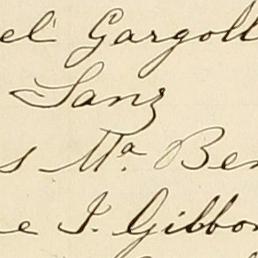 el Gargoll
Sanz
s Ma. Ber
e J. Gibbon